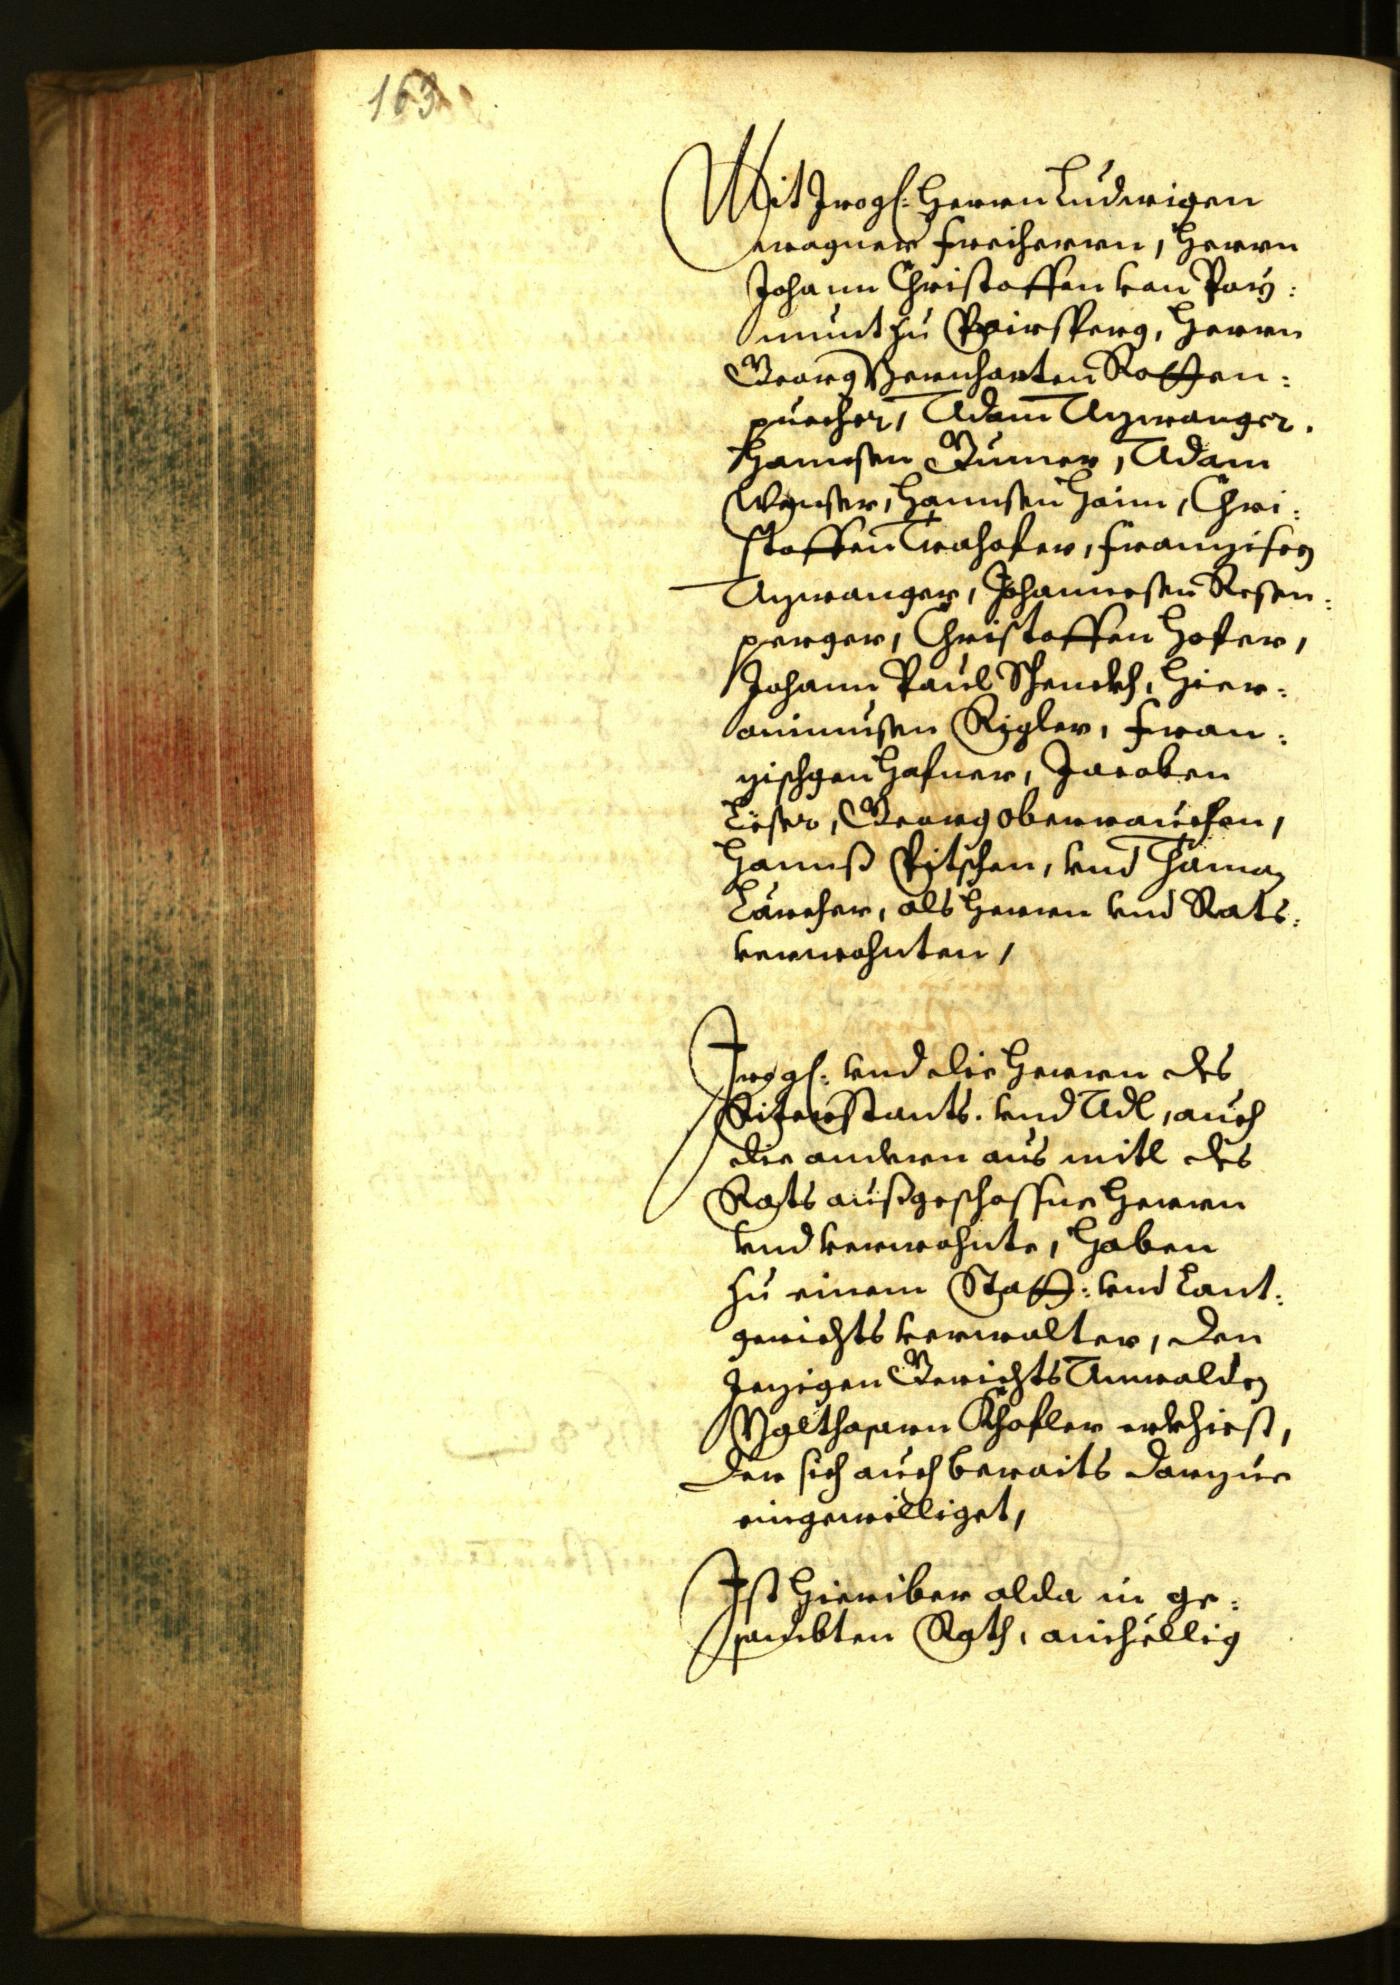 163
Mit Irog: Herrn Ludwigen
wagner Freiherrn, Herrn
Johann Christoffen von Paÿ:
munt zu Pairsperg, Herrn
Georg Bernharten Rotten:
puecher, Adam Azwanger.
Hannsen Rumer, Adam
Weinser, Hannsen Haim, Chri:
stoffen Trahofer, Franzisen
Azwanger, Johannesen Rosen:
perger, Christoffen Hofer,
Johann Paul Schenckh, Hier:
onimusen Rigler, Fran:
zischgen Hafner, Jacoben
Leser, Georg Oberrauchen,
Hannß Pitschen, vnd Thaman
Larcher, als Herren vnd Rats:
verwohnten,
Irog: vnd die Herren des
Riterstants. vnd Adl, auch
die andern aus mitl des
Rats außgeschossne Herren
vnd verwohnte, haben
zu einem Statt: vnd Lant:
gerichts verwalter, den
Jezigen Gerichts Anwalden
Walthasarn Khofler erkhiest,
der sich auch beraits darzue
eingewilliget,
Ist hieriber alda in ge:
sambten Rath, ainhellig